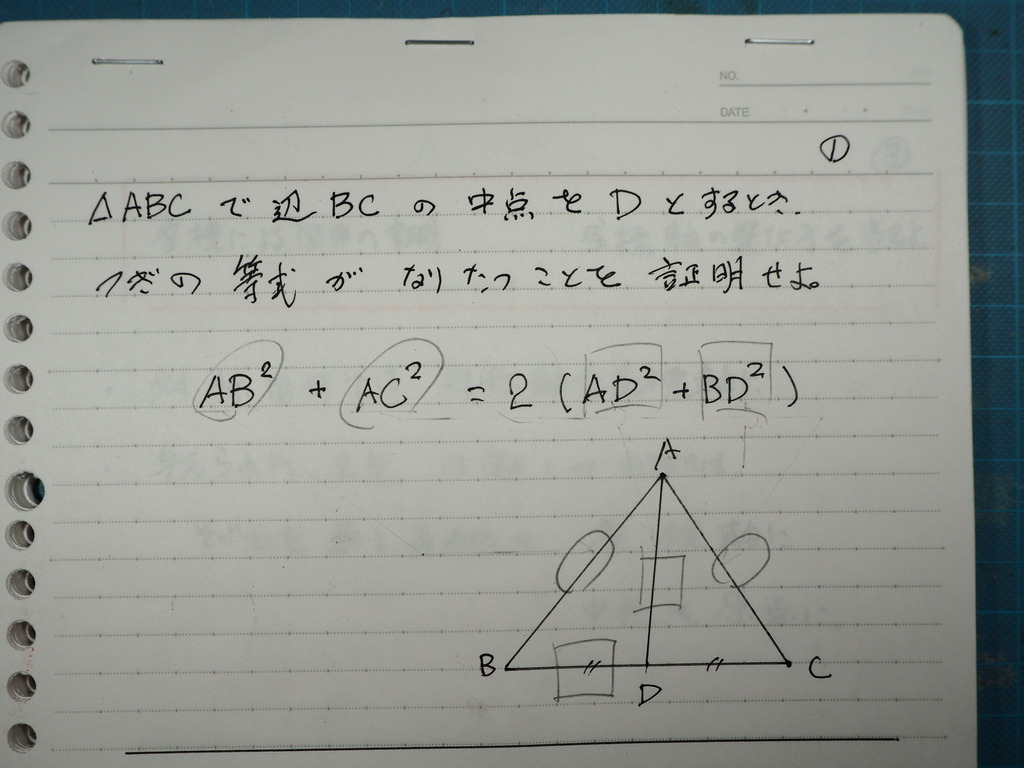 NO.
DATE
①
△ABCで辺BCの中点をDとするとき、
つぎの等式がなりたつことを証明せよ。
AB² + AC² = 2 (AD² + BD²)
A
B
D
C